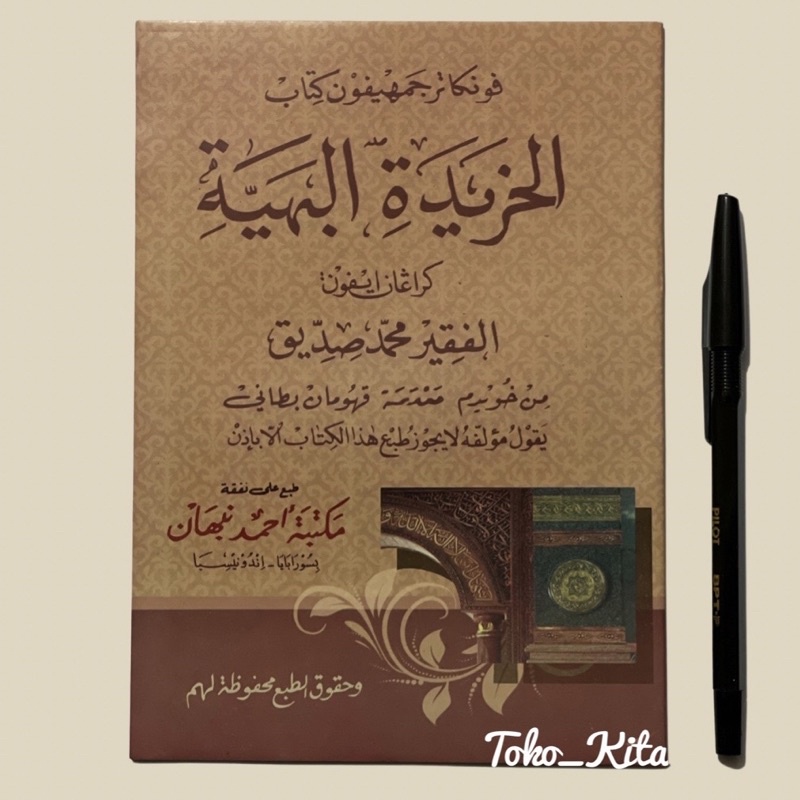 فونكا ترجمهيفون كتاب
الخَرِيْدَةِ البَهِيَّةِ
كراڠان ايفون
الفقِيْر محمّد صِدِّيق
مِنْ خُوَيْدِم مَقْدَمَة قهومان بطاني
يَقُوْلُ مؤلّفه لا يجوز طبع هذا الكِتَاب الا باِذن
طبع على نفقة
مكتبة احمد نبهان
بسُوْرَابَايَا - اِنْدُوْنِيْسِيَا
وحقوق الطبع محفوظة لهم
PILOT BPT-P
Toko_Kita